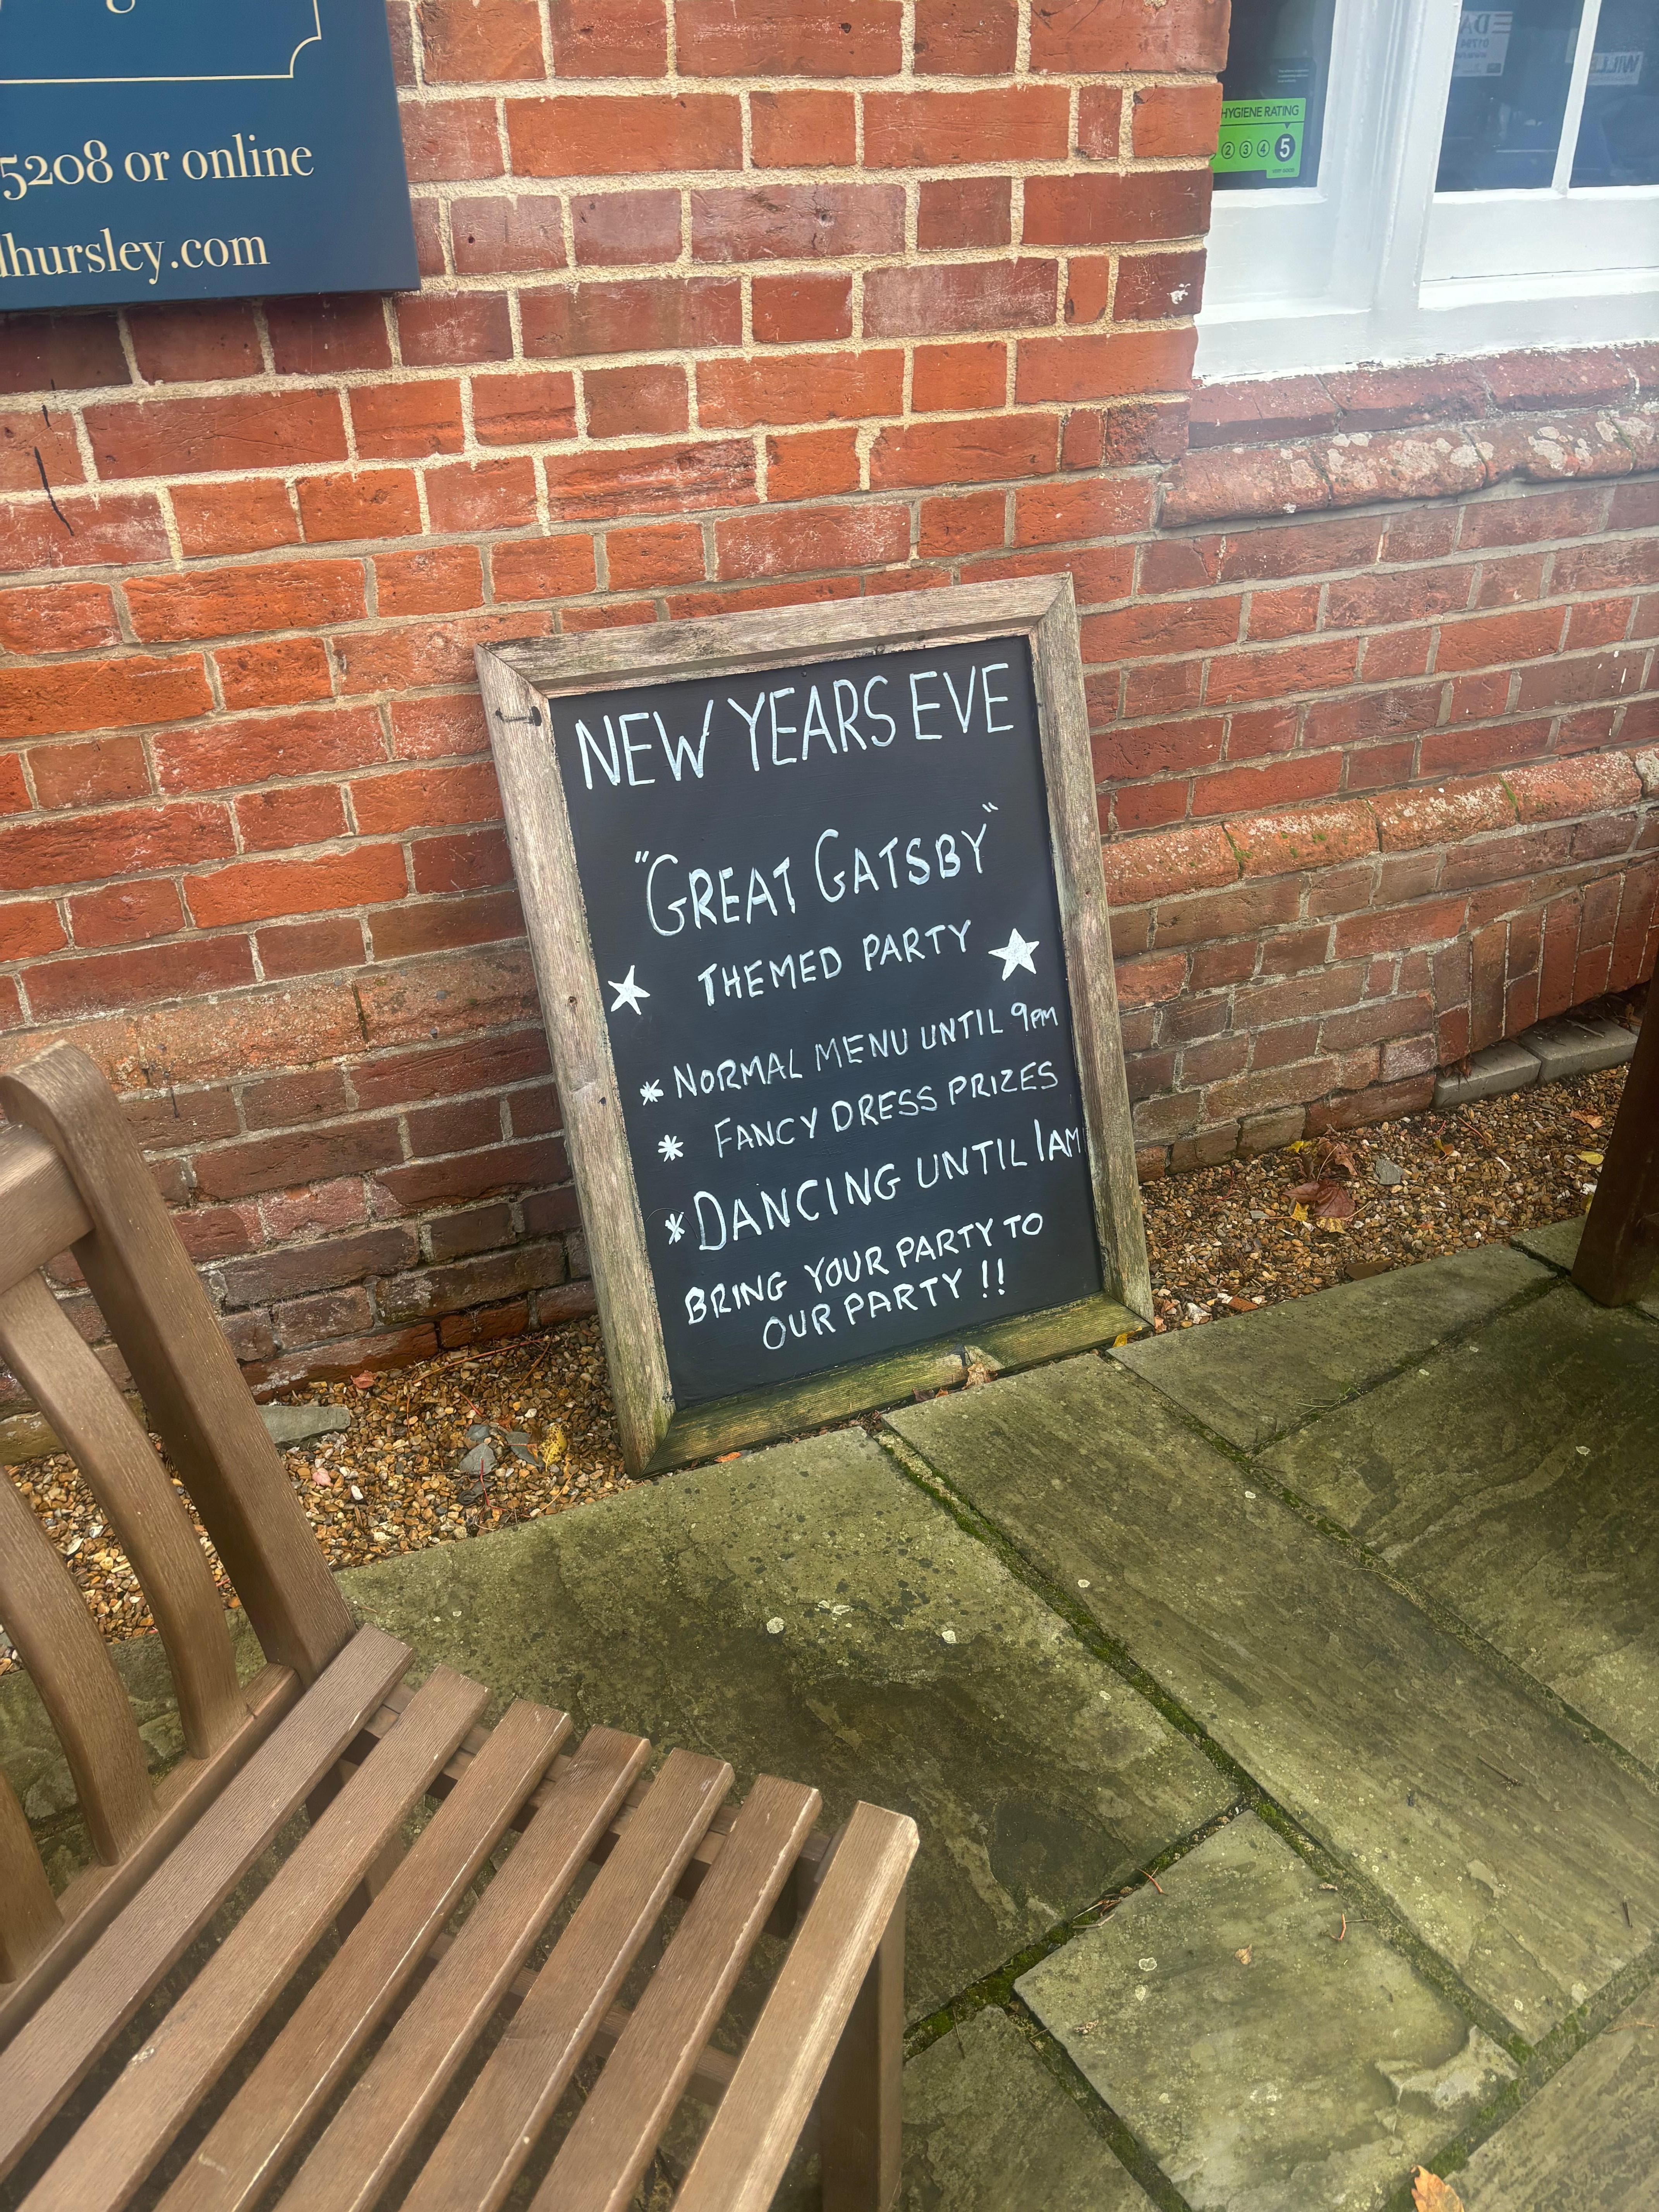 5208 or online
dhursley.com
HYGIENE RATING
2 3 4 5
VERY GOOD
NEW YEARS EVE
"GREAT GATSBY"
THEMED PARTY
* NORMAL MENU UNTIL 9PM
* FANCY DRESS PRIZES
* DANCING UNTIL 1AM
BRING YOUR PARTY TO
OUR PARTY !!